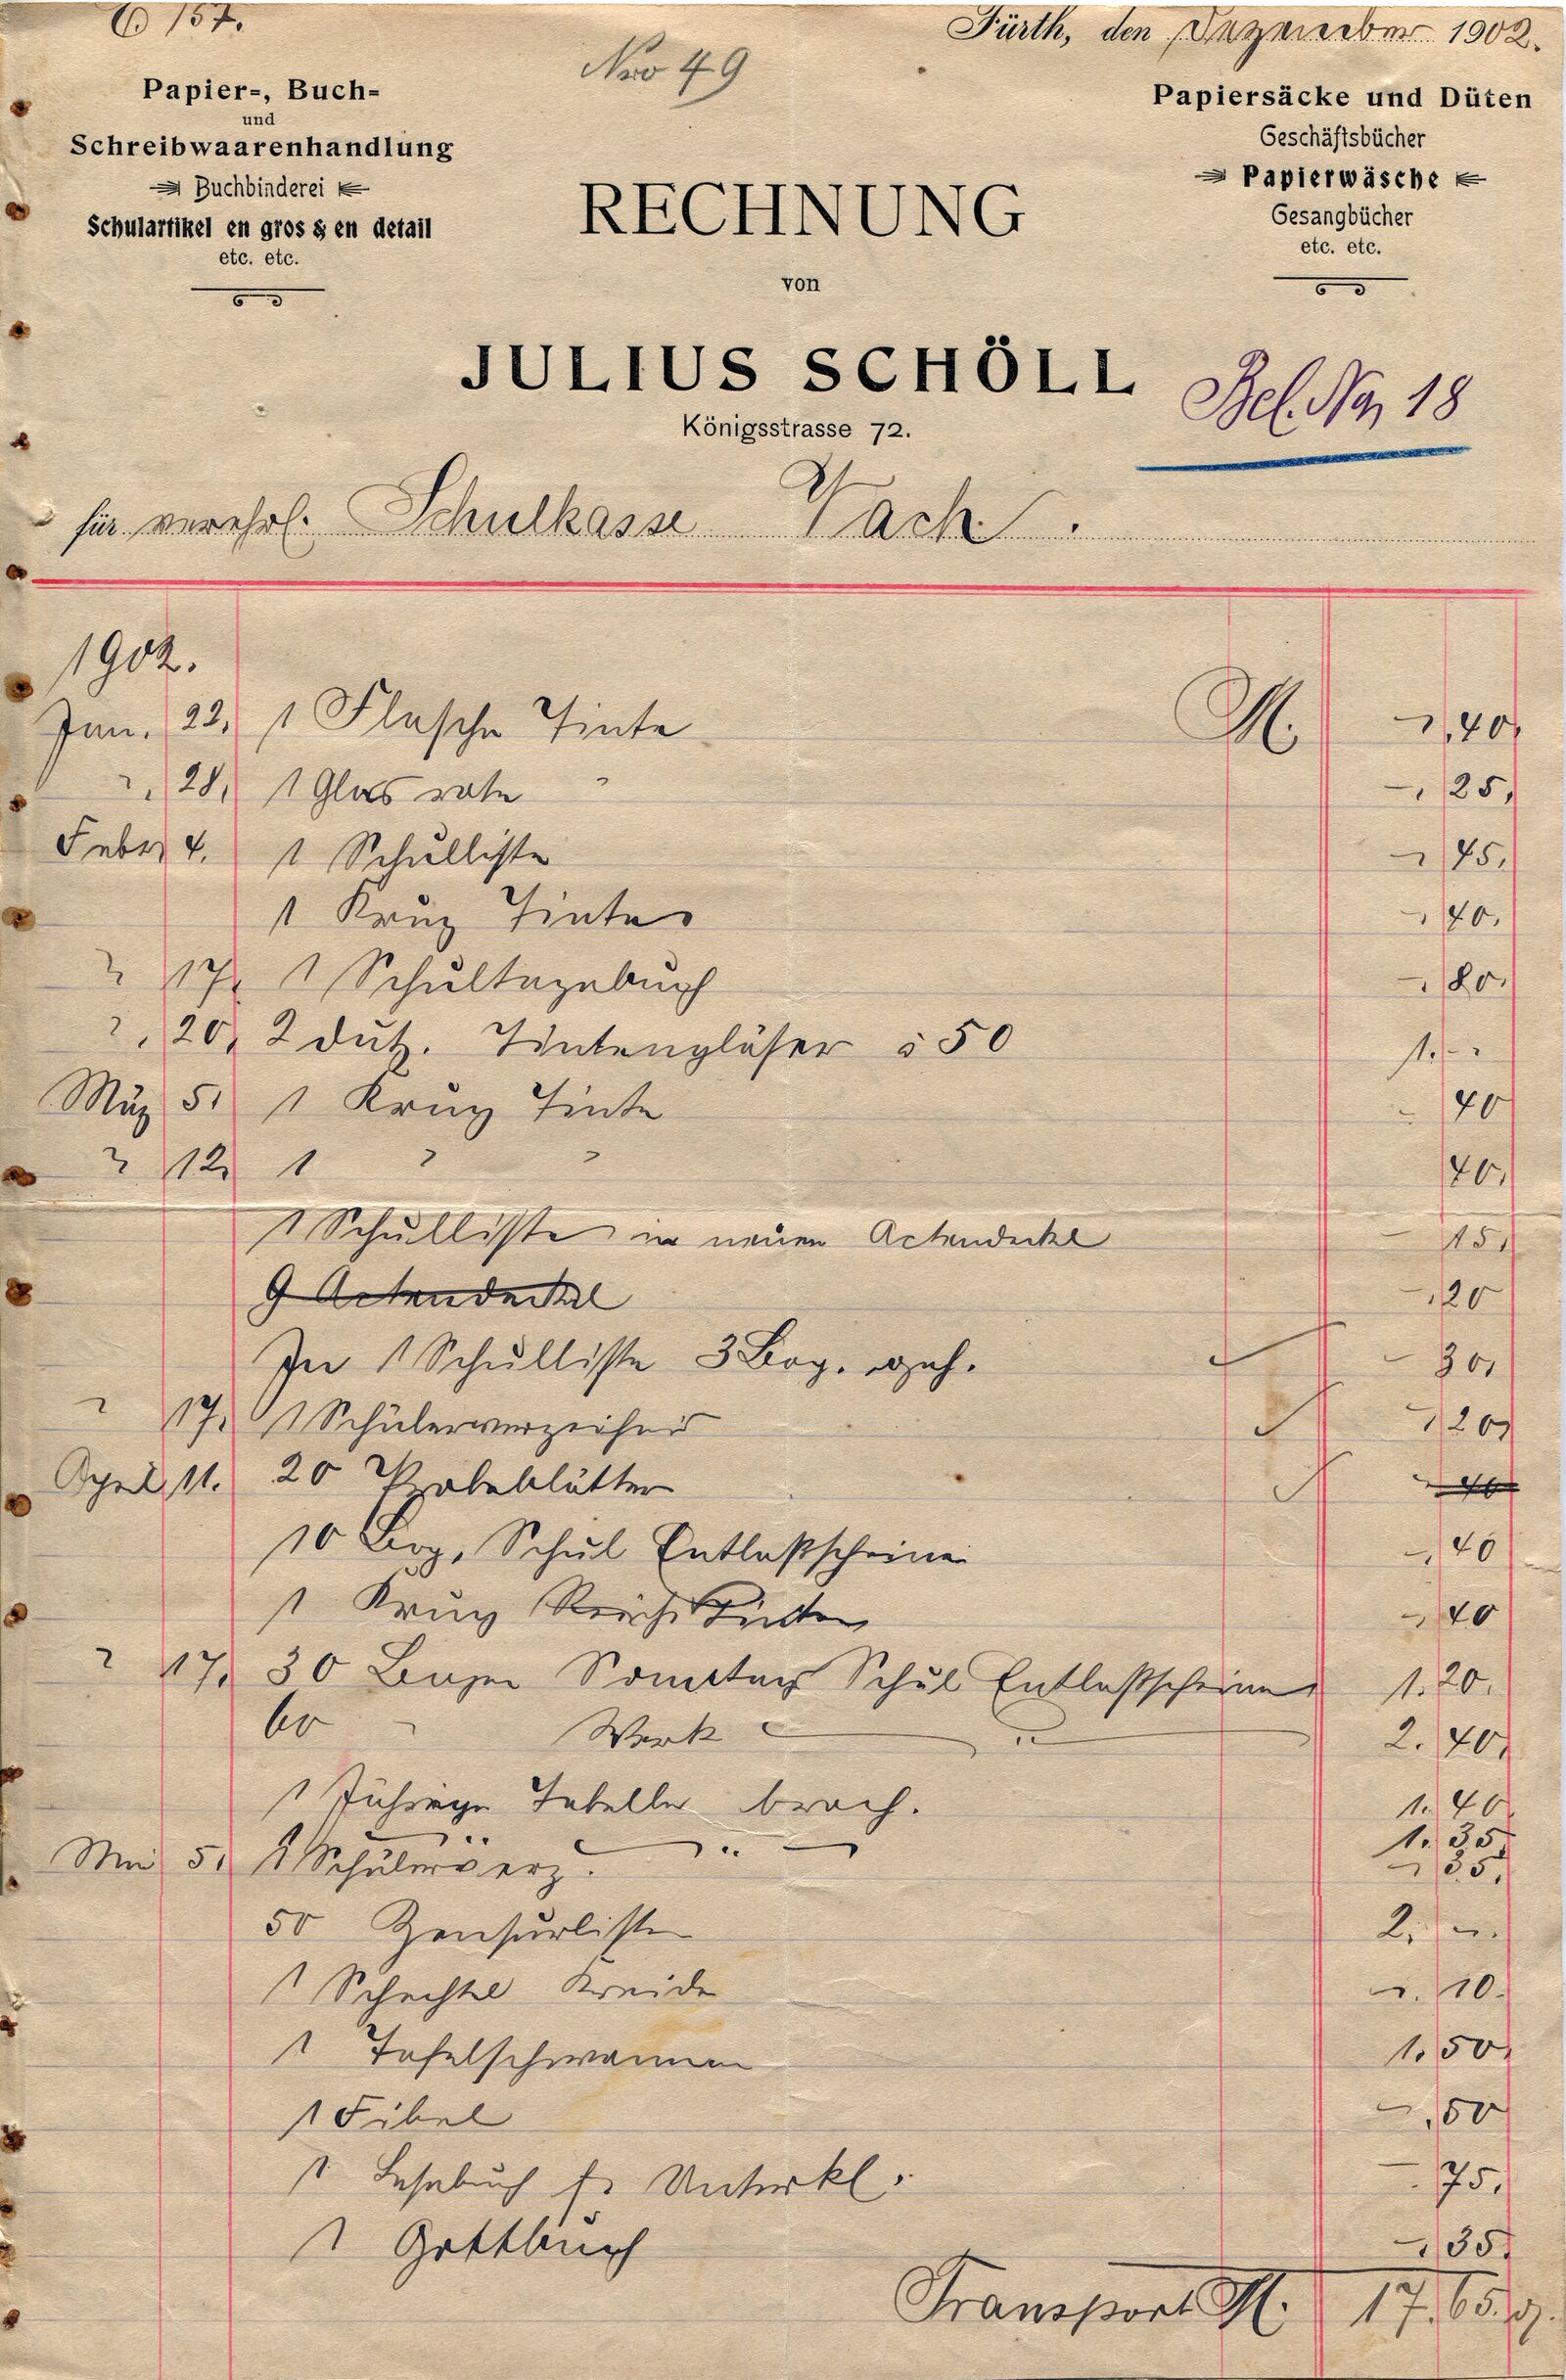 C 157.
Nro 49
Fürth, den Dezember 1902.
Papier-, Buch-
und
Schreibwaarenhandlung
Buchbinderei
Schulartikel en gros & en detail
etc. etc.
Papiersäcke und Düten
Geschäftsbücher
Papierwäsche
Gesangbücher
etc. etc.
RECHNUNG
von
JULIUS SCHÖLL
Königsstrasse 72.
Bel. No 18
für verehrl. Schulkasse Vach.
1902.
Jan. 22. 1 Flasche Tinte M. -,40,
" 28, 1 Glas rote " -,25,
Febr. 4. 1 Schulliste
1 Krug Tinte -,40,
" 17, 1 Schultagebuch -,80,
" 20, 2 dutz. Tintengläser à 50 1.--
März 5, 1 Krug Tinte -40
" 12, 1 " " 40,
1 Schulliste in neuen Actendeckel -15,
9 Actendeckel -,20
In 1 Schulliste 3 Bog. geh. -30,
" 17, 1 Schülerverzeichnis -,20,
April 11. 20 Probeblätter 40
10 Bog. Schul Entlaßscheine -,40
1 Krug Tinte -,40
" 17, 30 Bogen Sonntags Schul Entlaßscheine 1.20.
60 " Werk " 2.40,
1 Jährige Tabelle broch. 1.40
1.35,
Mai 5, 1 Schülerverz. -,35,
50 Zensurliste 2,-.
1 Schachtel Kreide -.10.
1 Tafelschwamm 1,50,
1 Fibel -,50
1 Lesebuch f. Unterkl. -75,
1 Gottbüch -,35,
Transport M. 17,65